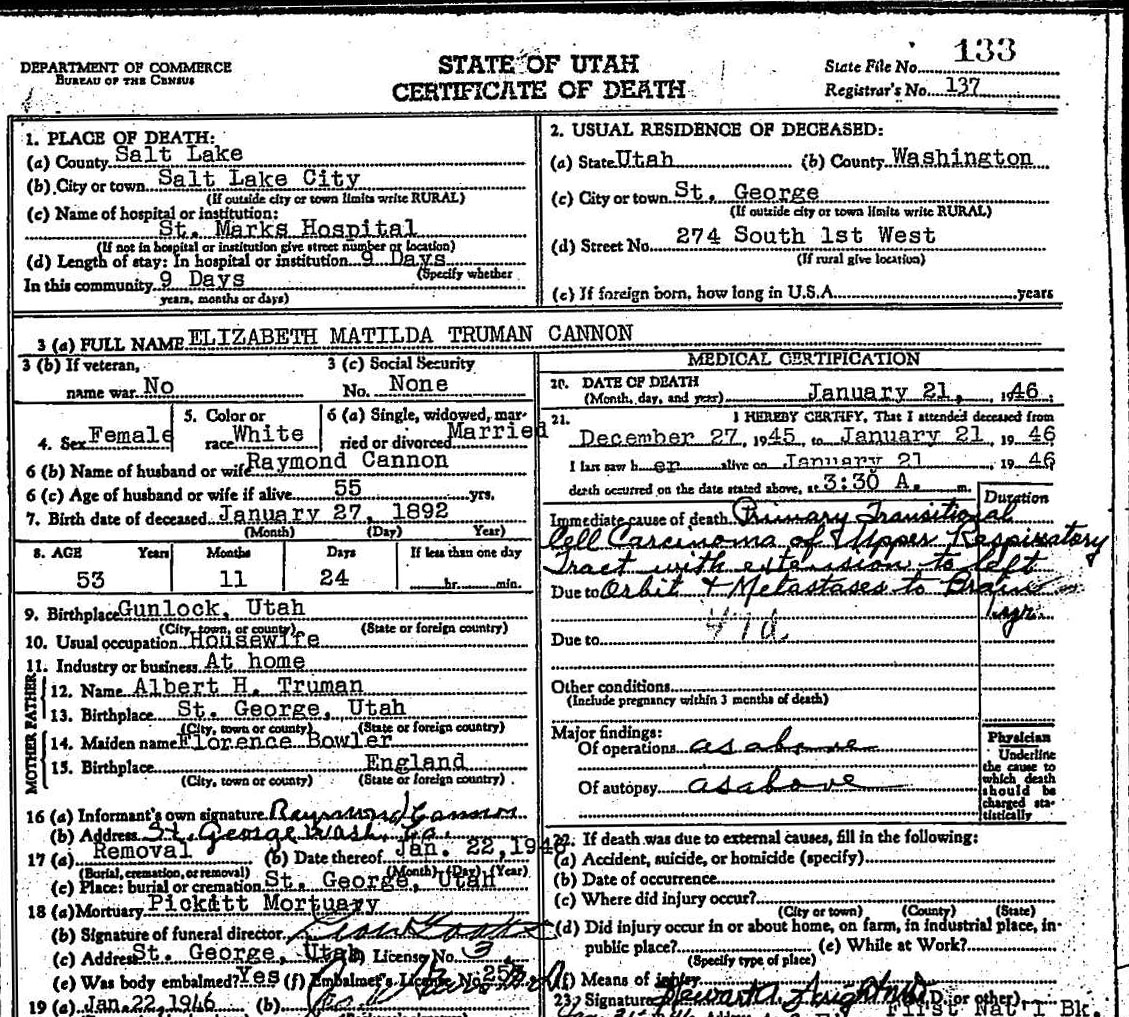 DEPARTMENT OF COMMERCE
BUREAU OF THE CENSUS
STATE OF UTAH
CERTIFICATE OF DEATH
State File No. 133
Registrar's No. 137
1. PLACE OF DEATH:
(a) County Salt Lake
(b) City or town Salt Lake City
(If outside city or town limits write RURAL)
(c) Name of hospital or institution:
St. Marks Hospital
(If not in hospital or institution give street number or location)
(d) Length of stay: In hospital or institution 9 Days
(Specify whether
In this community 9 Days
years, months or days)
2. USUAL RESIDENCE OF DECEASED:
(a) State Utah (b) County Washington
(c) City or town St. George
(If outside city or town limits write RURAL)
(d) Street No. 274 South 1st West
(If rural give location)
(e) If foreign born, how long in U.S.A. years
3 (a) FULL NAME ELIZABETH MATILDA TRUMAN CANNON
3 (b) If veteran,
name war No
3 (c) Social Security
No. None
4. Sex Female
5. Color or
race White
6 (a) Single, widowed, mar-
ried or divorced Married
6 (b) Name of husband or wife Raymond Cannon
6 (c) Age of husband or wife if alive 55 yrs.
7. Birth date of deceased January 27, 1892
(Month) (Day) Year)
8. AGE Years Months Days If less than one day
53 11 24 hr. min.
9. Birthplace Gunlock, Utah
(City, town, or county) (State or foreign country)
10. Usual occupation Housewife
11. Industry or business At home
FATHER
12. Name Albert H. Truman
13. Birthplace St. George, Utah
(City, town or county) (State or foreign country)
MOTHER
14. Maiden name Florence Bowler
15. Birthplace England
(City, town or county) (State or foreign country)
16 (a) Informant's own signature Raymond Cannon
(b) Address St. George Wash. Co.
17 (a) Removal (b) Date thereof Jan. 22, 1946
(Burial, cremation, or removal) (Month) (Day) (Year)
(c) Place: burial or cremation St. George, Utah
18 (a) Mortuary Pickett Mortuary
(b) Signature of funeral director
(c) Address St. George, Utah License No. 3
(e) Was body embalmed? Yes (f) Embalmer's License No. 258
19 (a) Jan. 22, 1946 (b)
MEDICAL CERTIFICATION
20. DATE OF DEATH
(Month, day, and year) January 21, 1946
21. I HEREBY CERTIFY, That I attended deceased from
December 27, 1945 to January 21, 1946
I last saw her alive on January 21 1946
death occurred on the date stated above, at 3:30 A. m.
Duration
Immediate cause of death Primary Transitional
Cell Carcinoma of Upper Respiratory
Tract with extension to left
Due to Orbit & Metastases to Brain
1 yr.
Due to
Other conditions
(Include pregnancy within 3 months of death)
Major findings:
Of operations as above
Of autopsy as above
Physician
Underline
the cause to
which death
should be
charged sta-
tistically
22. If death was due to external causes, fill in the following:
(a) Accident, suicide, or homicide (specify)
(b) Date of occurrence
(c) Where did injury occur?
(City or town) (County) (State)
(d) Did injury occur in or about home, on farm, in industrial place, in-
public place? (e) While at Work?
(Specify type of place)
(f) Means of injury
23. Signature (M.D. or other)
First Nat'l Bk.